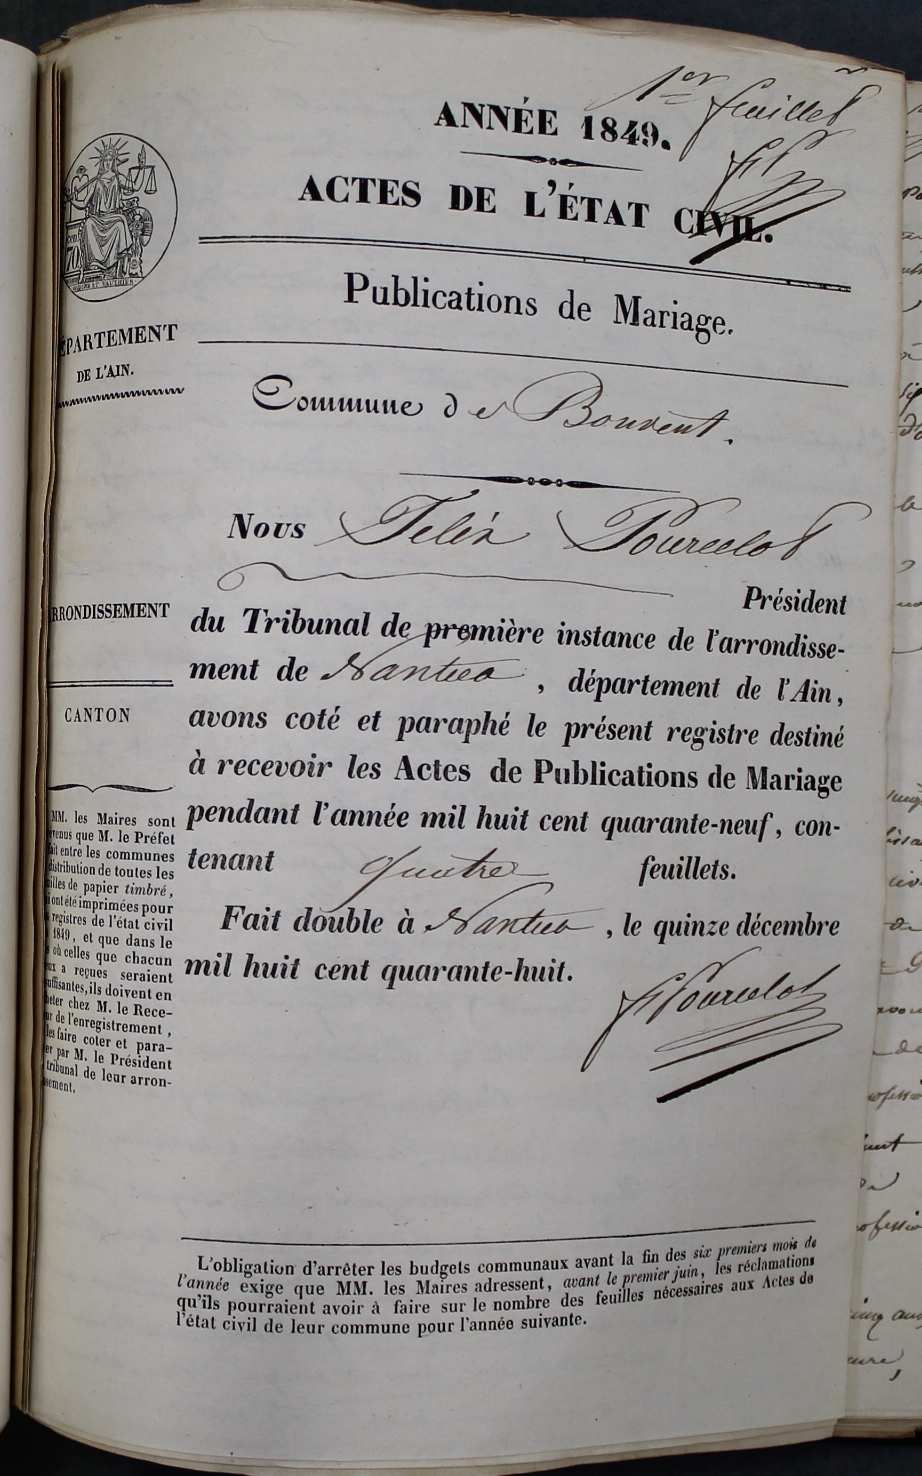 1er feuillet
ANNÉE 1849.
ACTES DE L'ÉTAT CIVIL.
Publications de Mariage.
ÉPARTEMENT
DE L'AIN.
Commune de Bouvent.
Nous Félix Pourcelot
Président
du Tribunal de première instance de l'arrondisse-
ment de Nantua, département de l'Ain,
avons coté et paraphé le présent registre destiné
à recevoir les Actes de Publications de Mariage
pendant l'année mil huit cent quarante-neuf, con-
tenant quatre feuillets.
Fait double à Nantua, le quinze décembre
mil huit cent quarante-huit.
F Pourcelot
RRONDISSEMENT
CANTON
MM. les Maires sont
venus que M. le Préfet
ait entre les communes
distribution de toutes les
illes de papier timbré,
i ont été imprimées pour
registres de l'état civil
1849, et que dans le
où celles que chacun
eux a reçues seraient
uffisantes, ils doivent en
heter chez M. le Rece-
ur de l'enregistrement,
les faire coter et para-
er par M. le Président
tribunal de leur arron-
sement.
L'obligation d'arrêter les budgets communaux avant la fin des six premiers mois de
l'année exige que MM. les Maires adressent, avant le premier juin, les réclamations
qu'ils pourraient avoir à faire sur le nombre des feuilles nécessaires aux Actes de
l'état civil de leur commune pour l'année suivante.